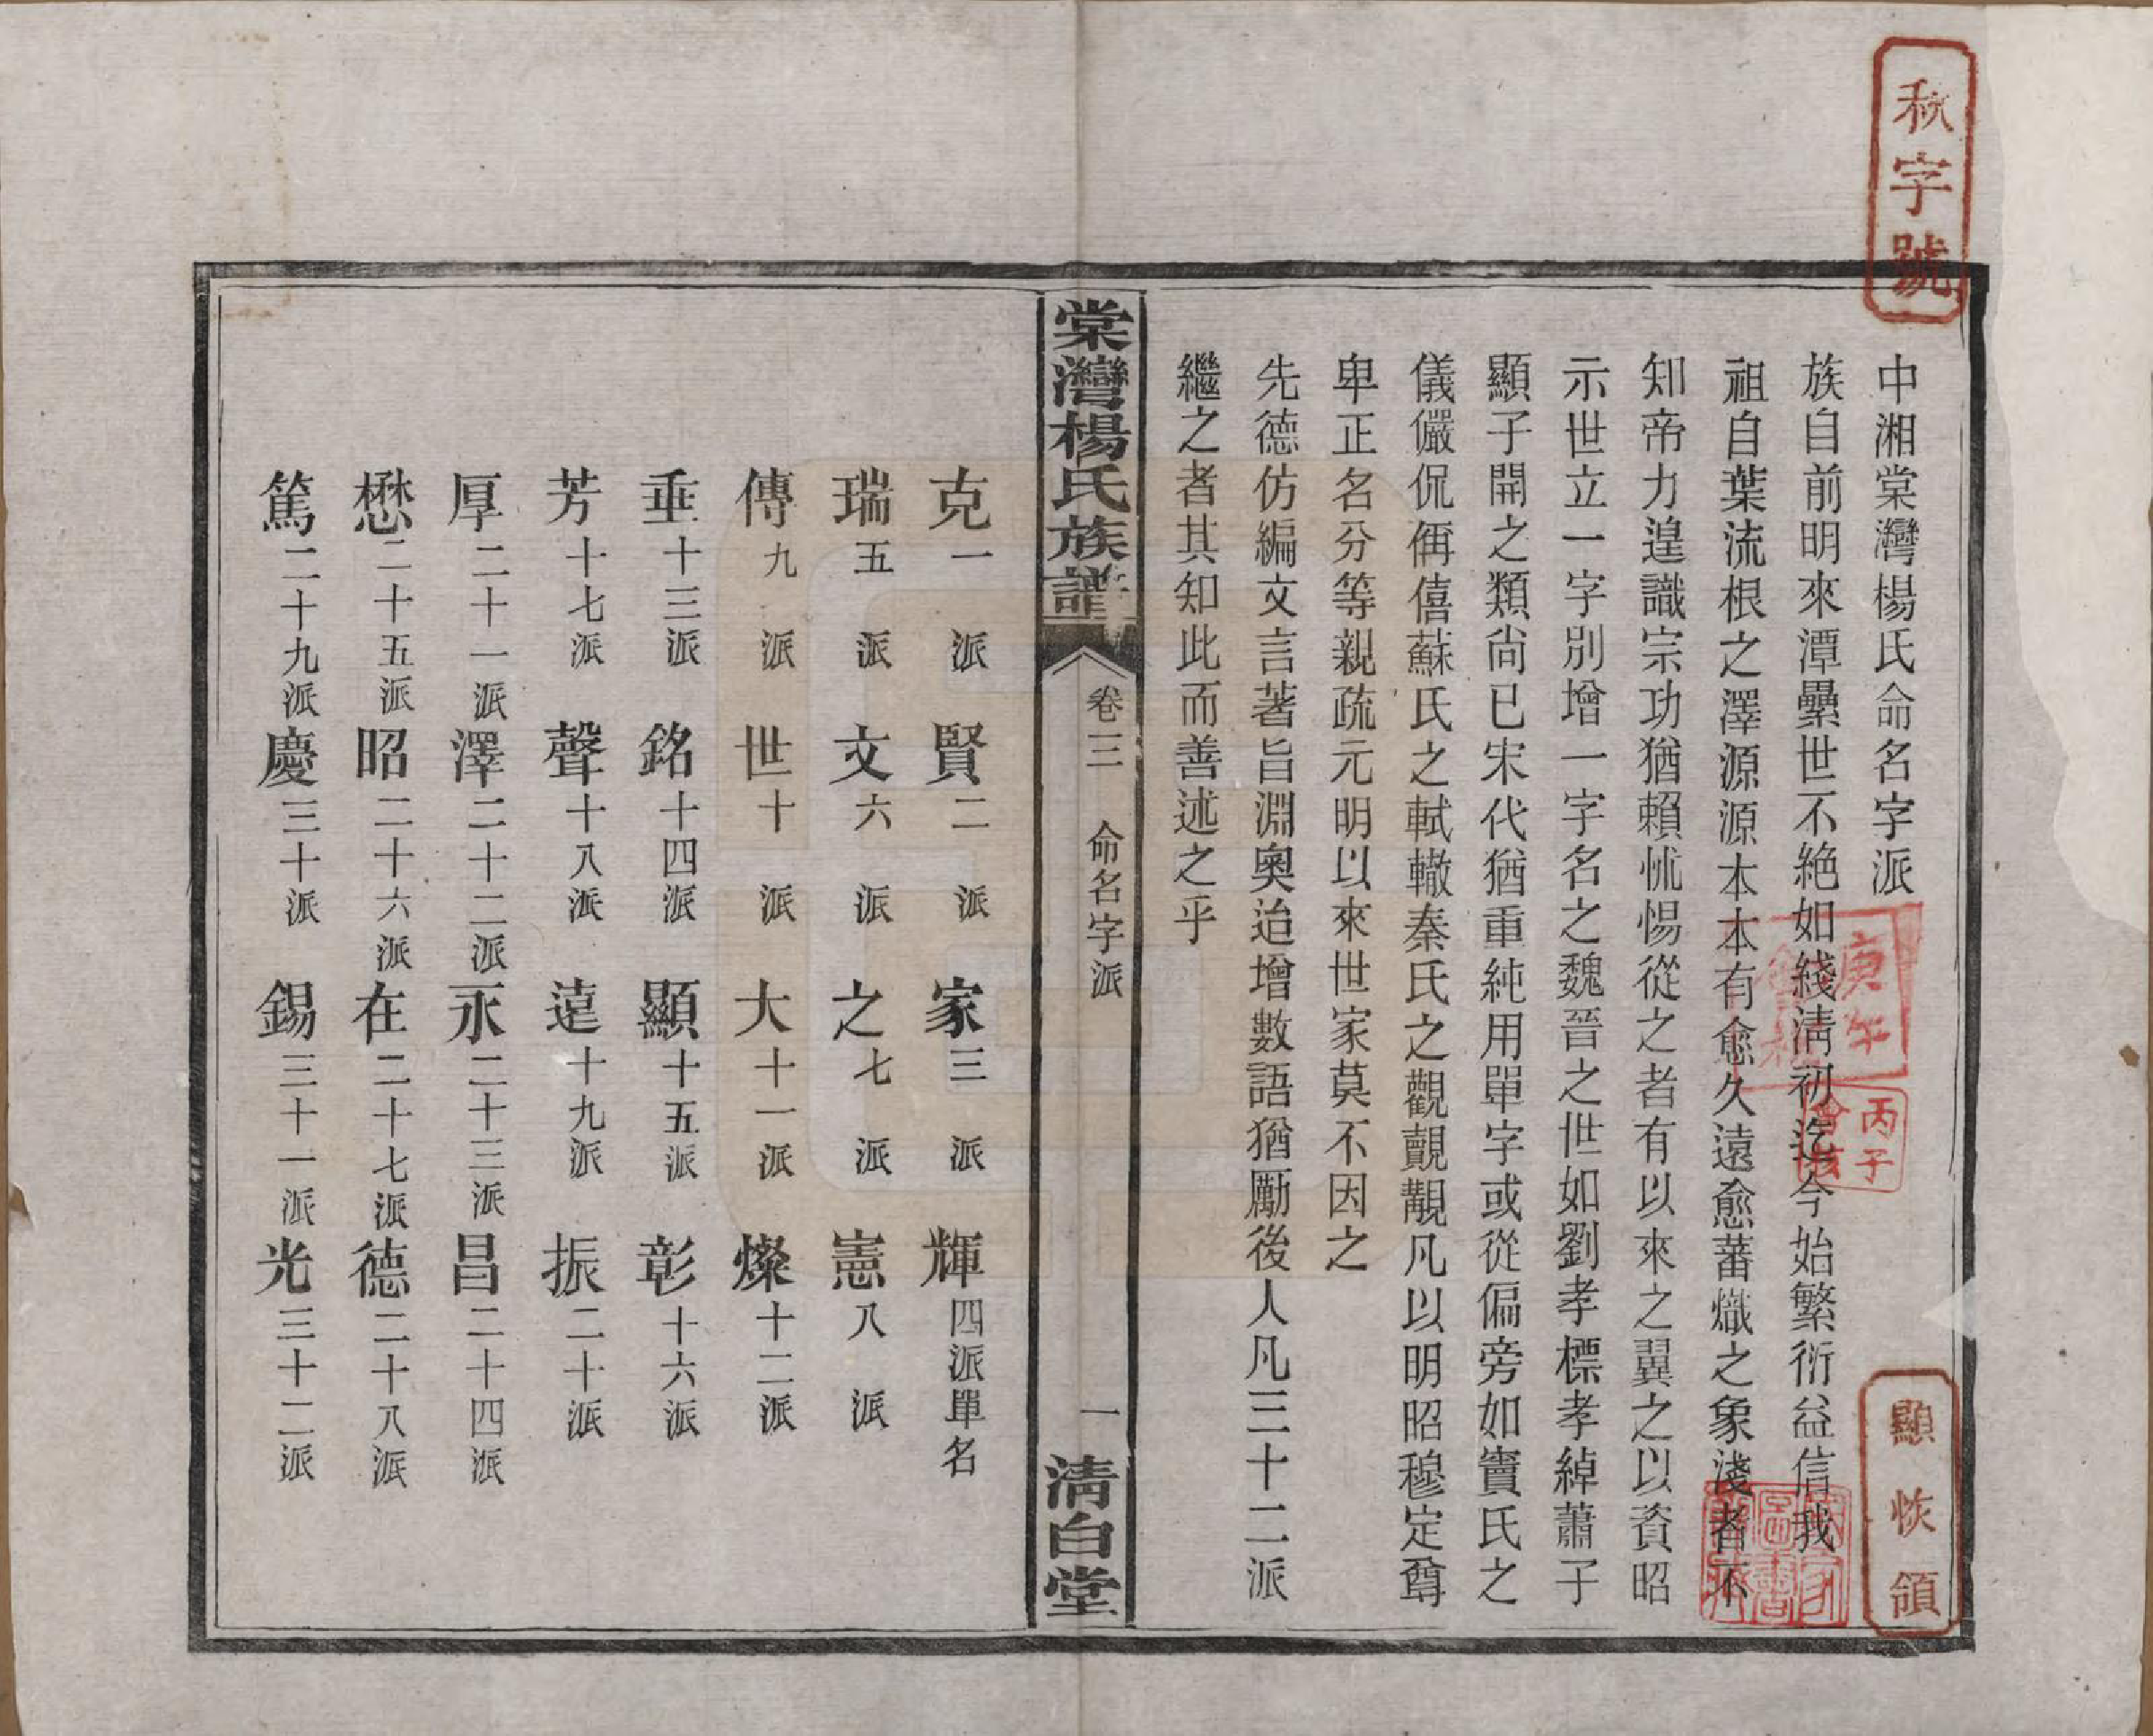 秋字號
中湘棠灣楊氏命名字派
族自前明來潭纍世不絶如綫淸初迄今始繁衍益信我
祖自葉流根之澤源源本本有愈久遠愈蕃熾之象淺者不
知帝力遑識宗功猶賴怵惕從之者有以來之翼之以資昭
示世立一字別增一字名之魏晉之世如劉孝標孝綽蕭子
顯子開之類尙已宋代猶重純用單字或從偏旁如竇氏之
儀儼侃偁僖蘇氏之軾轍秦氏之觀覿覯凡以明昭穆定尊
卑正名分等親疏元明以來世家莫不因之
先德仿編文言著旨淵奧迨增數語猶勵後人凡三十二派
繼之者其知此而善述之乎
顯恢領
庚午
丙子
棠灣楊氏族譜
卷三 命名字派
一
淸白堂
克一派 賢二派 家三派 輝四派單名
瑞五派 文六派 之七派 憲八派
傳九派 世十派 大十一派 燦十二派
垂十三派 銘十四派 顯十五派 彰十六派
芳十七派 聲十八派 遠十九派 振二十派
厚二十一派 澤二十二派 永二十三派 昌二十四派
懋二十五派 昭二十六派 在二十七派 德二十八派
篤二十九派 慶三十派 錫三十一派 光三十二派